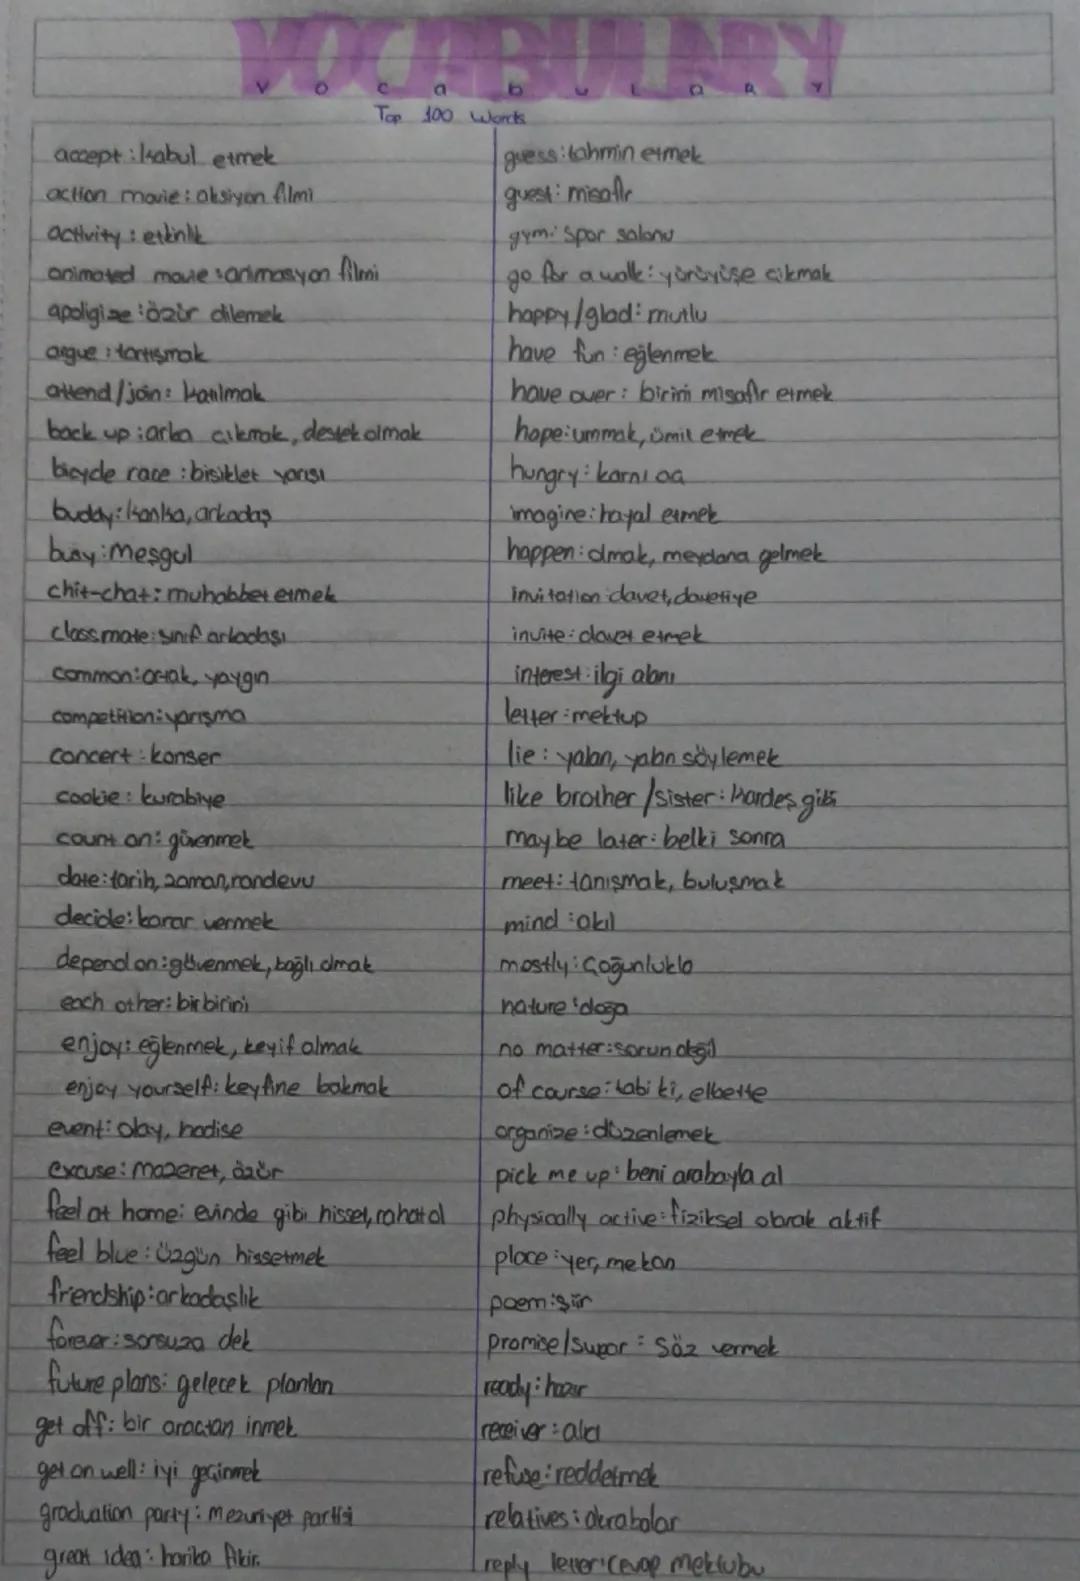 VOCABULARY
V o c a b u L a R Y
Top 100 Words
accept : kabul etmek
action movie : aksiyon filmi
activity : etkinlik
animated movie : animasyon filmi
apoligize : özür dilemek
argue : tartışmak
attend / join : katılmak
back up : arka çıkmak, destek olmak
bicycle race : bisiklet yarışı
buddy : kanka, arkadaş
busy : Meşgul
chit-chat : muhabbet etmek
classmate : sınıf arkadaşı
common : ortak, yaygın
competition : yarışma
concert : konser
cookie : kurabiye
count on : güvenmek
date : tarih, zaman, randevu
decide : karar vermek
depend on : güvenmek, bağlı olmak
each other : birbirini
enjoy : eğlenmek, keyif almak
enjoy yourself : keyfine bakmak
event : olay, hadise
excuse : mazeret, özür
feel at home : evinde gibi hisset, rahat ol
feel blue : üzgün hissetmek
friendship : arkadaşlık
forever : sonsuza dek
future plans : gelecek planları
get off : bir araçtan inmek
get on well : iyi geçinmek
graduation party : mezuniyet partisi
great idea : harika fikir
guess : tahmin etmek
guest : misafir
gym : spor salonu
go for a walk : yürüyüşe çıkmak
happy / glad : mutlu
have fun : eğlenmek
have over : birini misafir etmek
hope : ummak, ümit etmek
hungry : karnı aç
imagine : hayal etmek
happen : olmak, meydana gelmek
invitation : davet, davetiye
invite : davet etmek
interest : ilgi alanı
letter : mektup
lie : yalan, yalan söylemek
like brother / sister : kardeş gibi
maybe later : belki sonra
meet : tanışmak, buluşmak
mind : akıl
mostly : Çoğunlukla
nature : doğa
no matter : sorun değil
of course : tabi ki, elbette
organize : düzenlemek
pick me up : beni arabayla al
physically active : fiziksel olarak aktif
place : yer, mekan
poem : şiir
promise / : söz vermek
ready : hazır
receiver : alıcı
refuse : reddetmek
relatives : akrabalar
reply letter : cevap mektubu